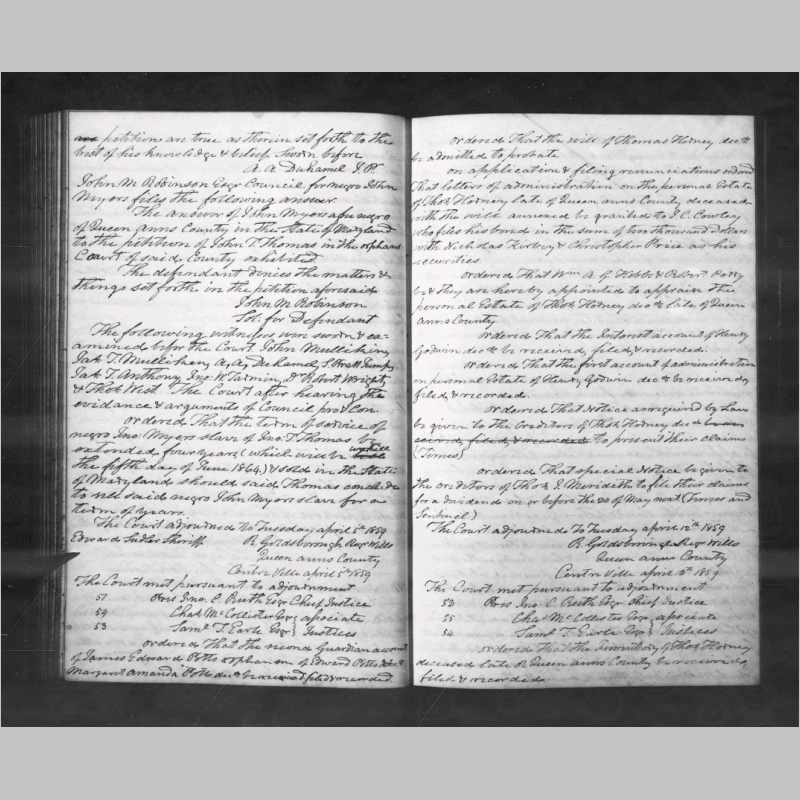 petition are true as therein set forth to the
best of his knowledge & belief Sworn before
A. A. Duhamel J. P.
John M Robinson Esqr Council for negro John
Myers files the following answer
The answer of John Myers a free negro
of Queen Anns County in the State of Maryland
to the petition of John T Thomas in the orphans
Court of said County exhibited
The defendant denies the matters &
things set forth in the petition aforesaid
John M Robinson
Sol. for Defendant
The following witnesses were sworn & ex-
amined before the Court John Mullikin,
Jas T. Mullikin, A. A. Duhamel,
Jas T. Anthony, Jno W. Dr Robert Wright,
& Thos West The Court after hearing the
evidence & arguments of Council pro & Con.
ordered that the term of service of
negro Jno Myers slave of Jno T Thomas be
extended four years (which will be until
the fifth day of June 1864) & sold in the State
of Maryland should said Thomas conclude
to sell said negro John Myers slave for a
term of years.
The Court adjourned to Tuesday april 5th 1859
Edward Sheriff R. Goldsborough Regr Wills
Queen anns County
Centre Ville april 5th 1859
The Court met pursuant to adjournment
57 Pres Jno C. Ruth Esqr Chief Justice
54 Chas McCollister Esqr associate
53 Saml T. Earle Esqr Justices
ordered that the second Guardian account
of James Edward Potts orphan son of Edward Potts &
Margaret amanda Potts decd be received filed & recorded.
ordered That the will of Thomas Horney decd
be admitted to probate
on application & filing renunciations ordered
That letters of administration on the personal Estate
of Thos Horney late of Queen anns County deceased
with the will annexed be granted to J. C.
who files his bond in the sum of two thousand Dollars
with Nicholas Kirby & Christopher Price as his
securities
ordered That Wm A. G. & Robert
be & they are hereby appointed to appraise the
personal Estate of Thos Horney decd late of Queen
anns County
ordered That the Interest account of Henry
Godwin decd be received, filed & recorded.
ordered That the first account of administration
on personal Estate of Henry Godwin decd be received
filed & recorded.
ordered That Notice as required by Law
be given to the Creditors of Thos Horney decd
ceived, filed, & recorded to present their claims
(Times)
ordered That special Notice be given to
the creditors of Thos J. Meridith to file their claims
for a dividend on or before the of May next (Times and
Sentinel)
The Court adjourned To Tuesday april 12th 1859
R. Goldsborough Regr Wills
Queen anns County
Centre Ville april 1859
The Court met pursuant to adjournment
Pres Jno C. Ruth Esqr Chief Justice
55 Chas McCollister Esqr associate
54 Saml T. Earle Esqr Justices
ordered that the Inventory of Thos Horney
deceased late of Queen anns County be received,
filed & recorded